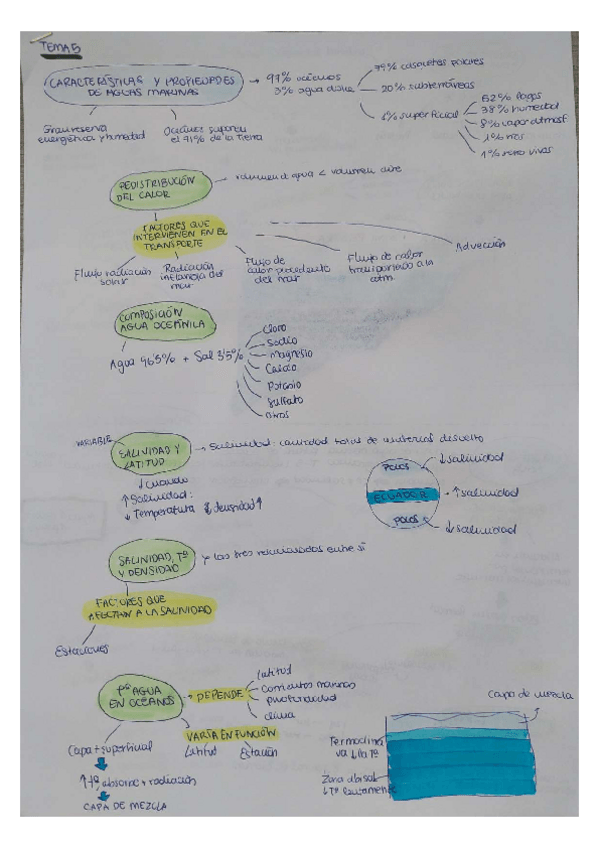 TEMA 5
CARACTERÍSTICAS Y PROPIEDADES
DE AGUAS MARINAS
97% océanos
3% agua dulce
79% casquetes polares
20% subterráneas
1% superficial
52% lagos
38% humedad
8% vapor atmosf
1% ríos
1% seres vivos
Gran reserva
energética y humedad
Océanos suponen
el 71% de la Tierra
REDISTRIBUCIÓN
DEL CALOR
volumen agua < volumen aire
FACTORES QUE
INTERVIENEN EN EL
TRANSPORTE
Flujo radiación
solar
Radiación
del
mar
Flujo de
calor
del mar
Flujo de calor
transportado a la
atm.
Advección
COMPOSICIÓN
AGUA OCEÁNICA
Agua 96'5% + Sal 3'5%
Cloro
Sodio
Magnesio
Calcio
Potasio
Sulfato
Otros
VARIABLE
SALINIDAD Y
LATITUD
Salinidad: cantidad total de materias disuelto
↓ cuando
↑ Salinidad:
↓ Temperatura densidad ↑
POLOS
↓ salinidad
ECUADOR
↑ salinidad
POLOS
↓ salinidad
SALINIDAD, Tª
Y DENSIDAD
las tres relacionadas entre sí
FACTORES QUE
AFECTAN A LA SALINIDAD
Estaciones
Tª AGUA
EN OCÉANOS
DEPENDE
Latitud
Corrientes marinas
profundidad
clima
VARÍA EN FUNCIÓN
Latitud
Estación
Capa + superficial
↑ tª absorbe + radiación
CAPA DE MEZCLA
Capa de mezcla
Termoclina
va ↓ la Tª
Zona abisal
↓ Tª lentamente